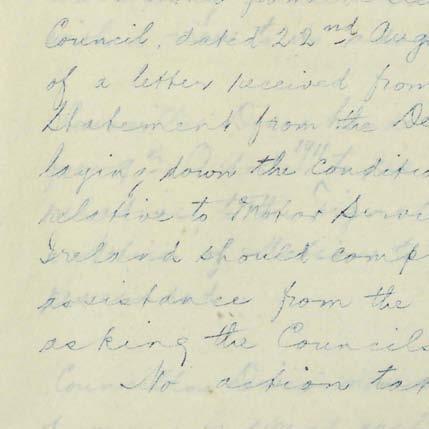 Council, dated 22nd Aug
of a letter received from
Statement from the De
laying down the conditio
relative to Motor Servi
Ireland should comp
assistance from the
asking the Councils
No action tak